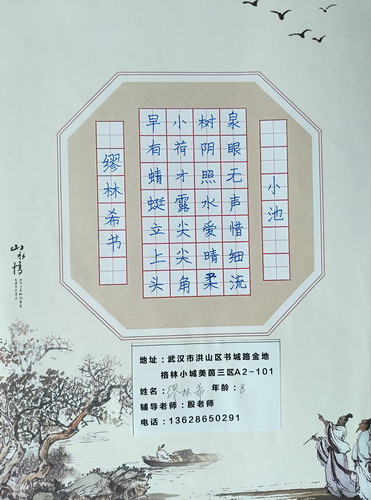 小池
泉眼无声惜细流
树阴照水爱晴柔
小荷才露尖尖角
早有蜻蜓立上头
缪林希书
山水情
地址：武汉市洪山区书城路金地
格林小城美茵三区A2-101
姓名：缪林希 年龄：8
辅导老师：殷老师
电话：13628650291